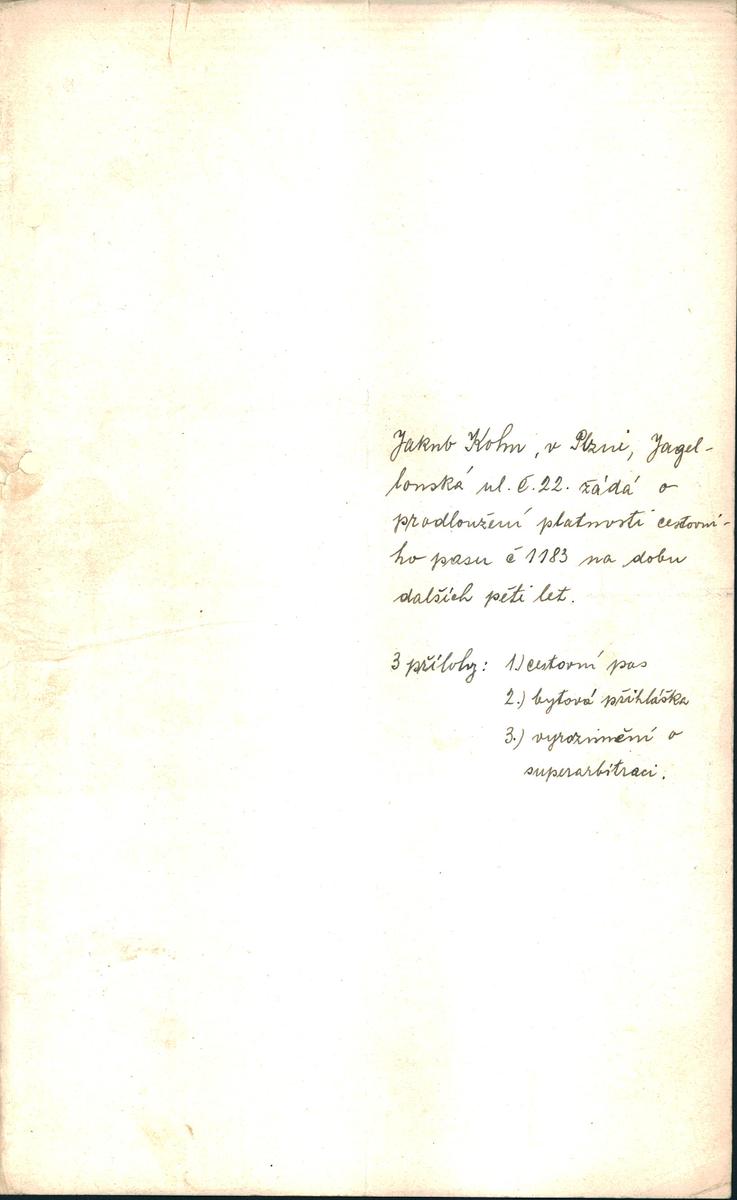 Jakub Kohn, v Plzni, Jagel-
lonská ul. č. 22. žádá o
prodloužení platnosti cestovní-
ho pasu č 1183 na dobu
dalších pěti let.
3 přílohy: 1) cestovní pas
2.) bytová přihláška
3.) vyrozumění o
superarbitraci.